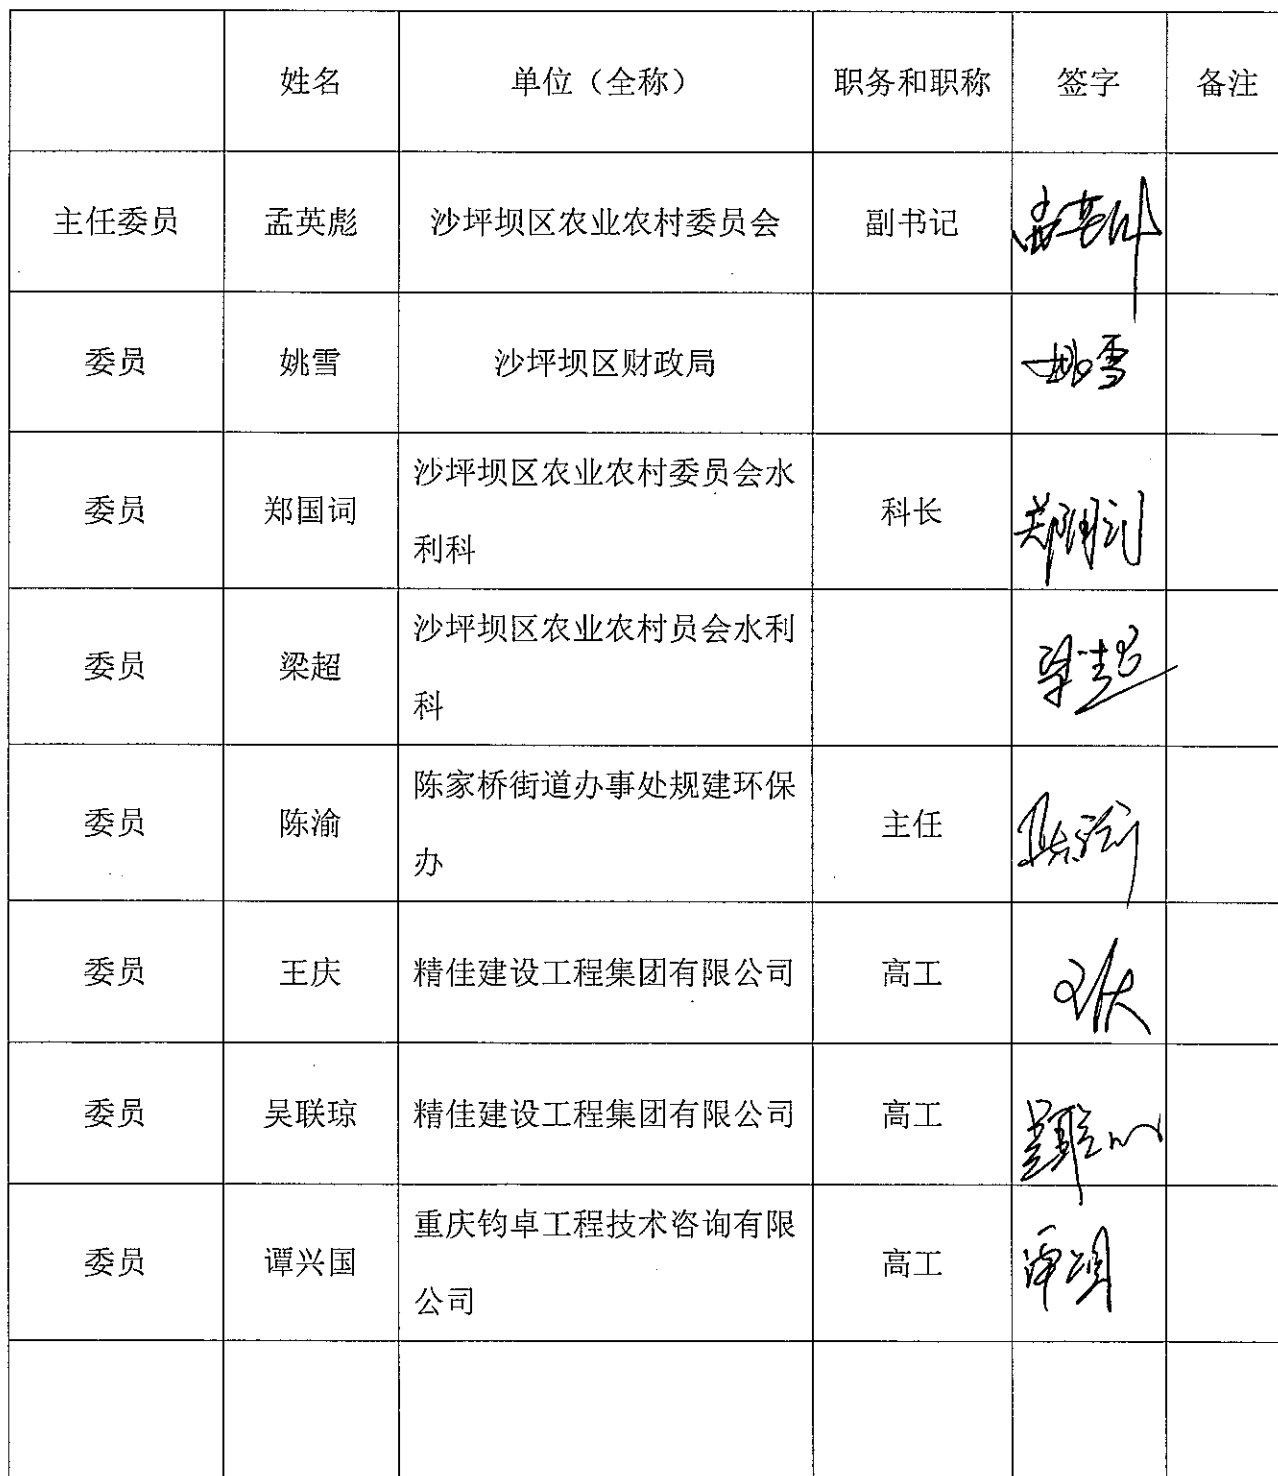 姓名 单位（全称） 职务和职称 签字 备注
主任委员 孟英彪 沙坪坝区农业农村委员会 副书记 孟英彪
委员 姚雪 沙坪坝区财政局 姚雪
委员 郑国词 沙坪坝区农业农村委员会水
利科 科长 郑国词
委员 梁超 沙坪坝区农业农村员会水利
科 梁超
委员 陈渝 陈家桥街道办事处规建环保
办 主任 陈渝
委员 王庆 精佳建设工程集团有限公司 高工 王庆
委员 吴联琼 精佳建设工程集团有限公司 高工 吴联琼
委员 谭兴国 重庆钧卓工程技术咨询有限
公司 高工 谭兴国